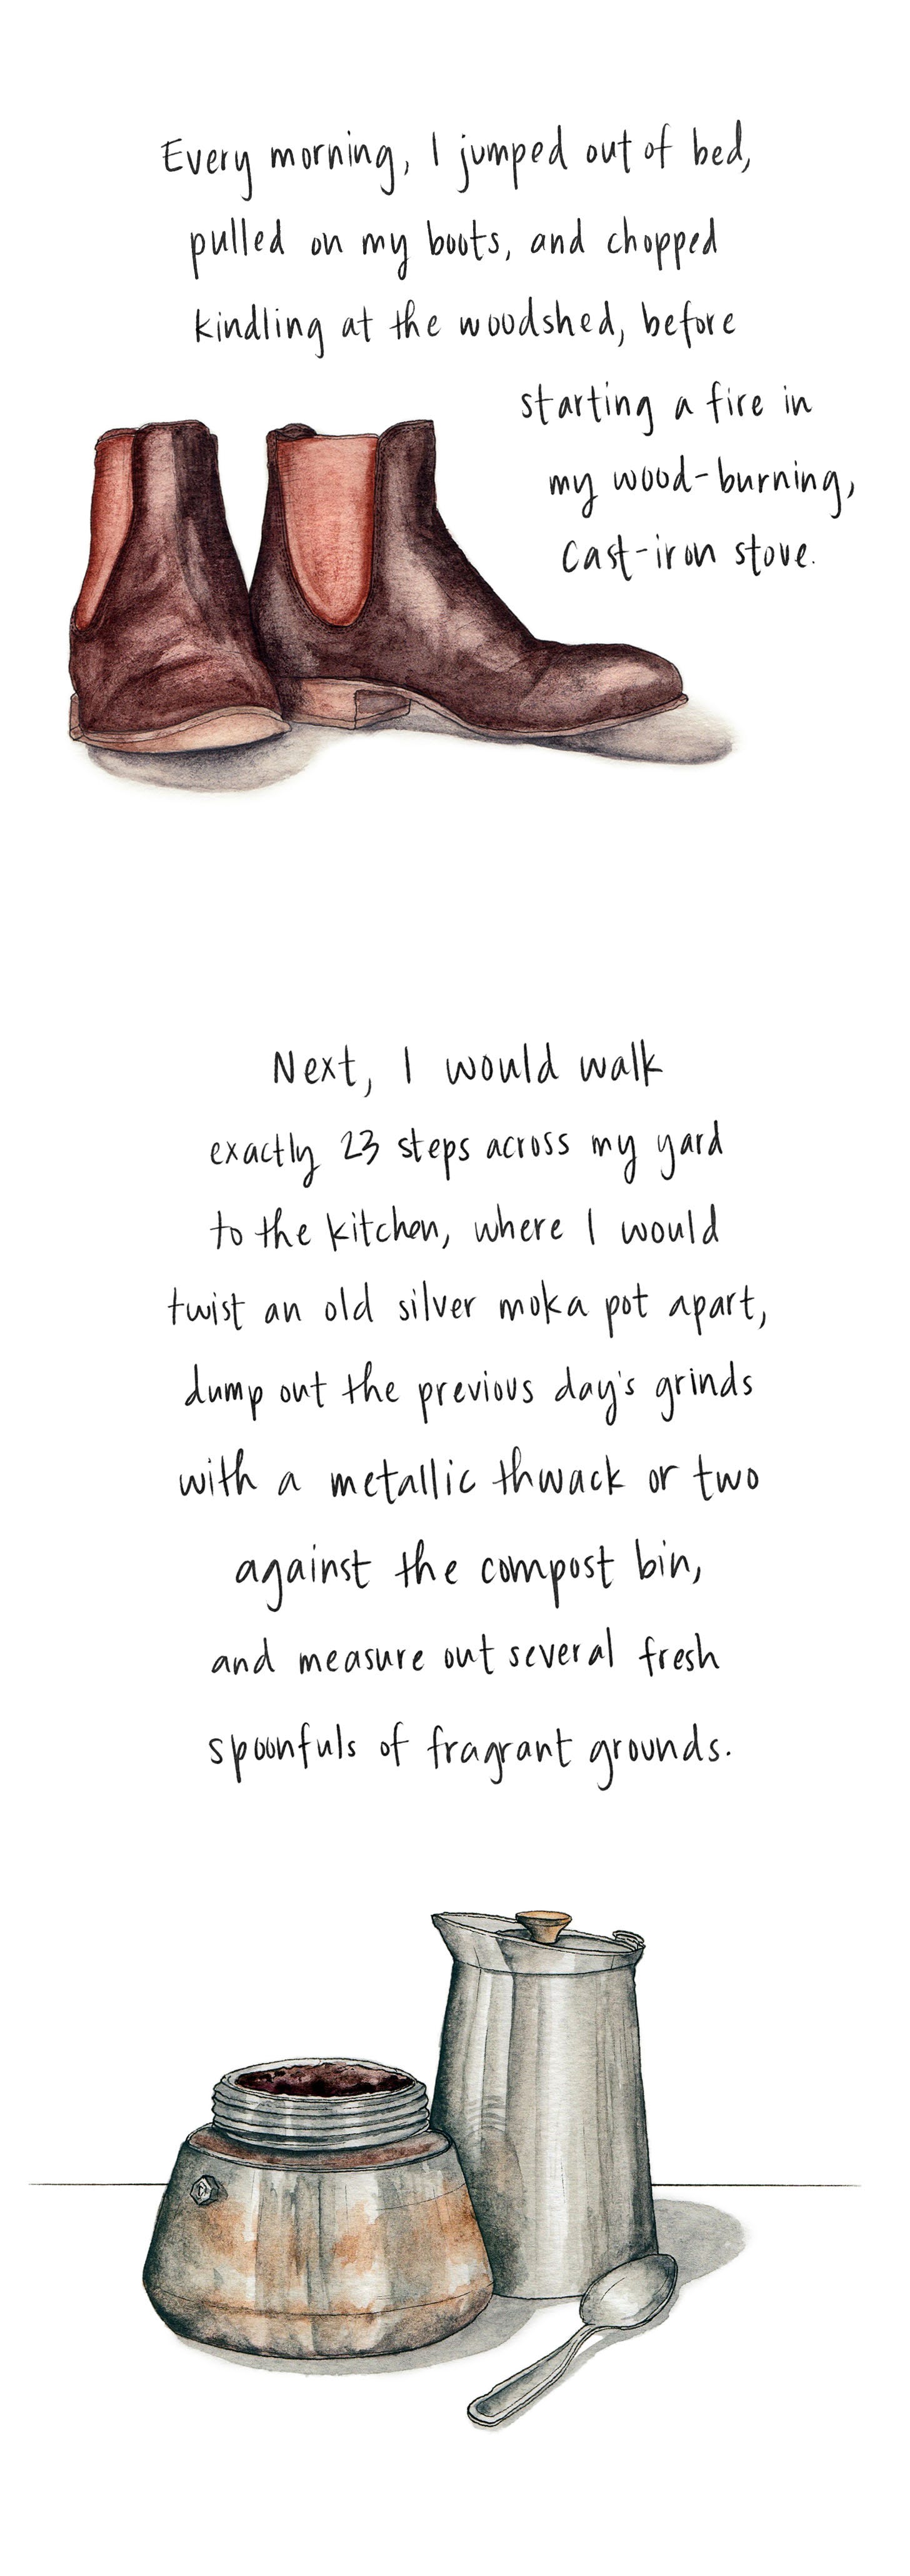 Every morning, I jumped out of bed,
pulled on my boots, and chopped
kindling at the woodshed, before
starting a fire in
my wood-burning,
cast-iron stove.
Next, I would walk
exactly 23 steps across my yard
to the kitchen, where I would
twist an old silver moka pot apart,
dump out the previous day's grinds
with a metallic thwack or two
against the compost bin,
and measure out several fresh
spoonfuls of fragrant grounds.